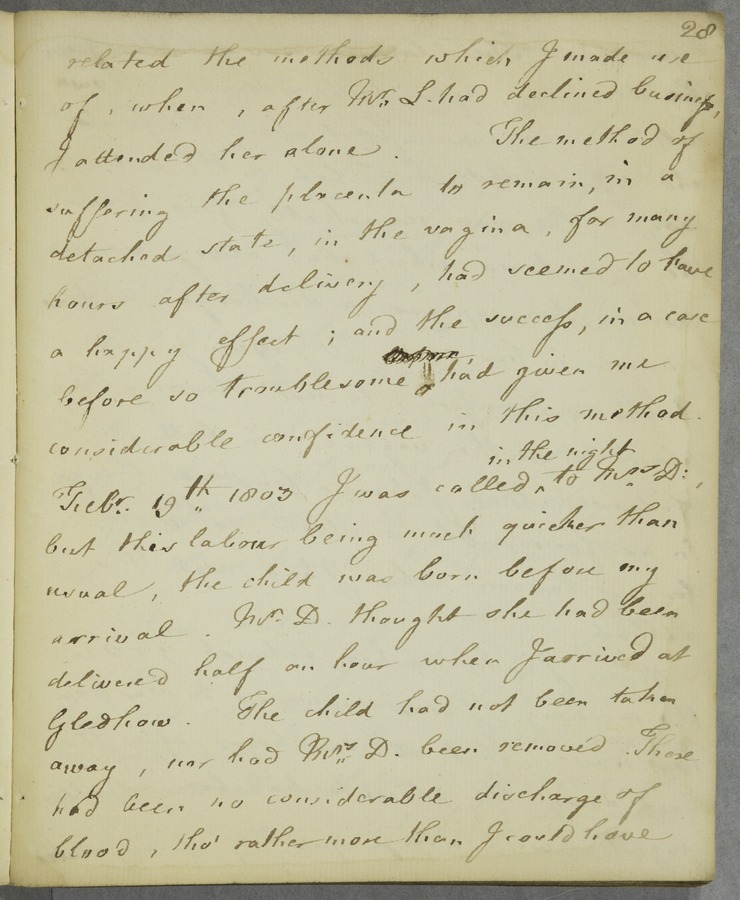 28
related the methods which I made use
of, when, after Mr. L. had declined business,
I attended her alone. The method of
suffering the placenta to remain, in a
detached state, in the vagina, for many
hours after delivery, had seemed to have
a happy effect; and the success, in a case
before so troublesome, had given me
considerable confidence in this method.
in the night
Febr. 19th 1803 I was called ‸ to Mrs D:,
but this labour being much quicker than
usual, the child was born before my
arrival. Mr. D. thought she had been
delivered half an hour when I arrived at
Gledhow. The child had not been taken
away, nor had Mrs D. been removed. There
had been no considerable discharge of
blood, tho' rather more than I could have